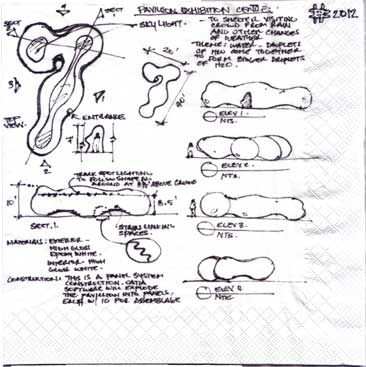 PAVILION EXHIBITION CENTRE.
2012
SECT 2
SECT
SKY LIGHT.
TO SHELTER VISITING
CROWD FROM RAIN
AND OTHER CHANGES
OF WEATHER
THEME: WATER - DROPLETS
OF H2O COME TOGETHER
TO FORM BIGGER DROPLETS
OF H2O.
4
3
1
2
TOP
VIEW.
20'
40'
ENTRANCE
7'
ELEV 1.
NTS.
ELEV 2.
NTS.
ELEV 3.
NTS.
ELEV 4.
NTS.
TRACK SPOT LIGHTING
TO FOLLOW SHAPE &
AROUND AT 8½' ABOVE CROWD
10'
8.5'
SECT. 1.
SPACES.
MATERIALS: EXTERIOR -
HIGH GLOSS
EPOXY WHITE.
INTERIOR - HIGH
GLOSS WHITE.
CONSTRUCTION: THIS IS A PANEL SYSTEM
CONSTRUCTION. CATIA
SOFTWARE WILL EXPLODE
THE PAVILION INTO PANELS,
EACH W/ ID FOR ASSEMBLAGE